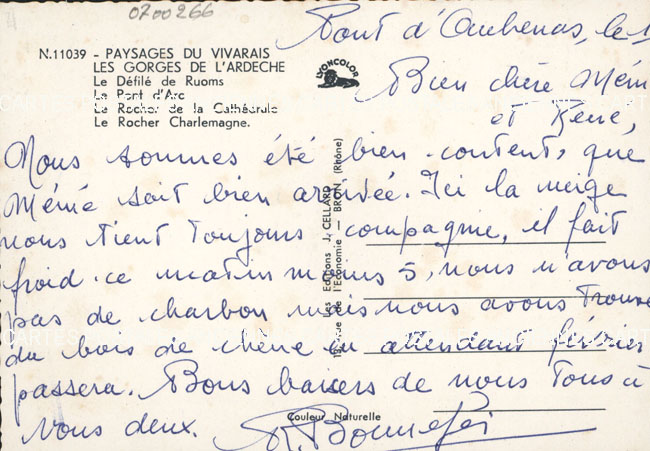 0700266
N.11039 - PAYSAGES DU VIVARAIS
LES GORGES DE L'ARDECHE
Le Défilé de Ruoms
Le Pont d'Arc
Le Rocher de la Cathédrale
Le Rocher Charlemagne.
LYONCOLOR
Les Editions J. CELLARD
de l'Economie — BRON (Rhône)
Couleur Naturelle
Pont d'Aubenas, le 1
Bien chère Mém
et René,
Nous sommes été bien content, que
Mémé soit bien arrivée. Ici la neige
nous tient toujours compagnie, il fait
froid ce matin moins 5, nous n'avons
pas de charbon mais nous avons trouvé
du bois de chêne en attendant février
passera. Bons baisers de nous tous à
vous deux.